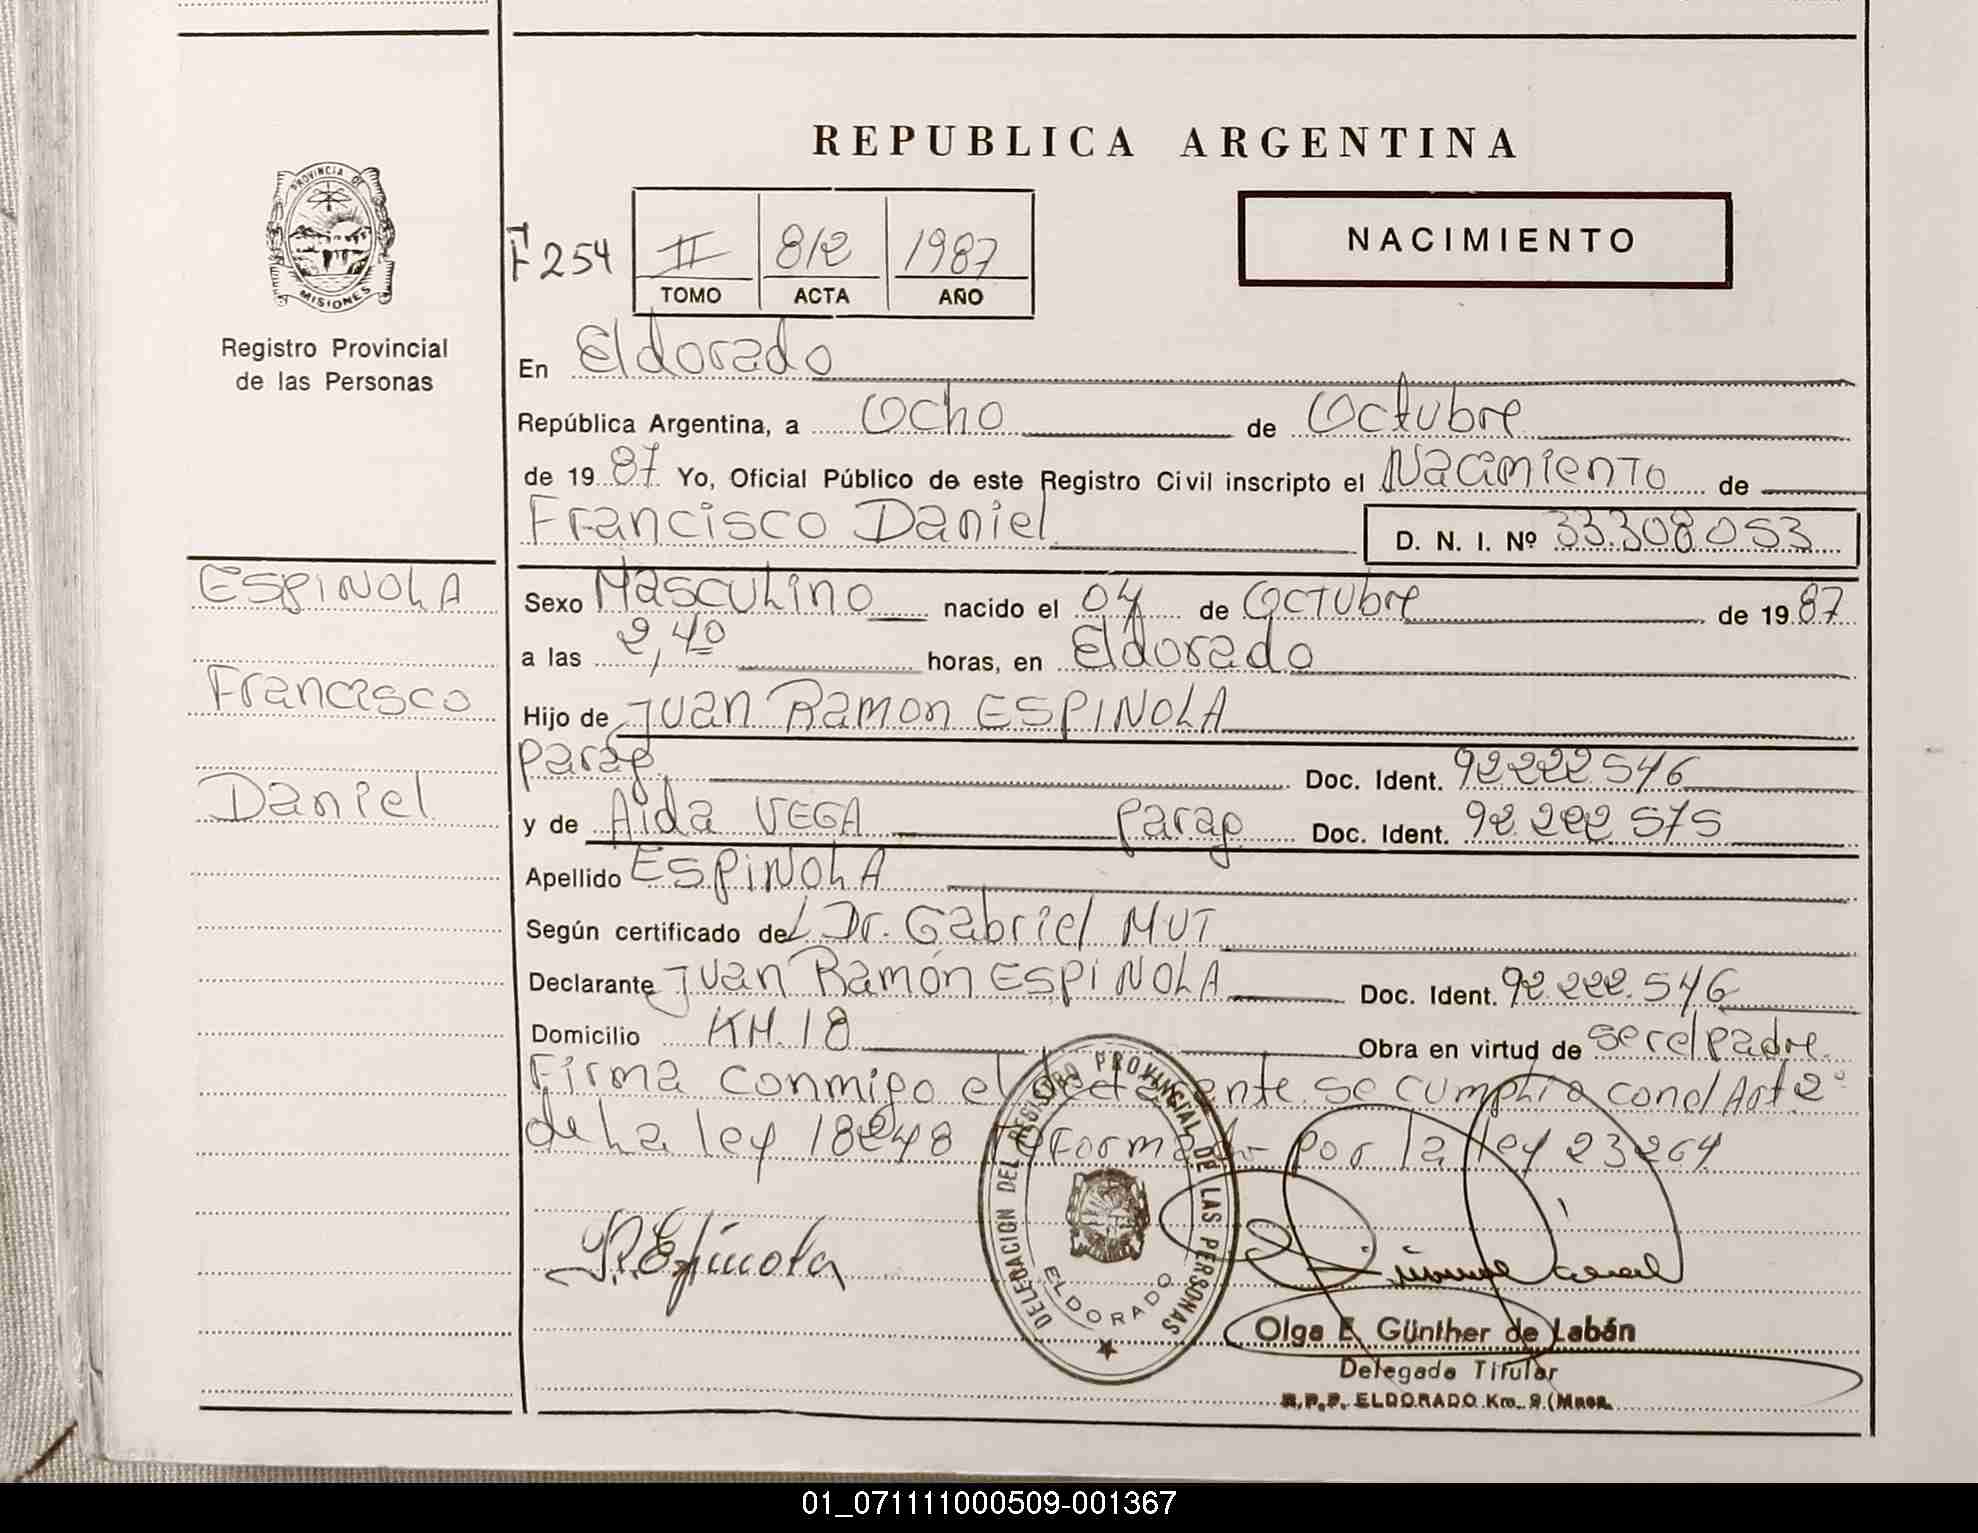 REPUBLICA ARGENTINA
PROVINCIA DE
MISIONES
Registro Provincial
de las Personas
F 254
II 812 1987
TOMO ACTA AÑO
NACIMIENTO
En Eldorado
República Argentina, a Ocho de Octubre
de 1987 Yo, Oficial Público de este Registro Civil inscripto el Nacimiento de
Francisco Daniel D. N. I. Nº 33.308.053
ESPINOLA
Francisco
Daniel
Sexo Masculino nacido el 04 de Octubre de 1987
a las 2,40 horas, en Eldorado
Hijo de Juan Ramon ESPINOLA
parag Doc. Ident. 92.222.546
y de Aida VEGA parag Doc. Ident. 92.222.575
Apellido ESPINOLA
Según certificado del Dr. Gabriel MUT
Declarante Juan Ramón ESPINOLA Doc. Ident. 92.222.546
Domicilio KM. 18 Obra en virtud de ser el padre.
Firma conmigo el declarante. se cumplio con el Art 2º
de la ley 18248 reformado por la ley 23264
DELEGACION DEL REGISTRO PROVINCIAL DE LAS PERSONAS
ELDORADO
Espinola
Olga E. Günther de Labán
Delegada Titular
R.P.P. ELDORADO Km. 9 (Mnes.
01_071111000509-001367